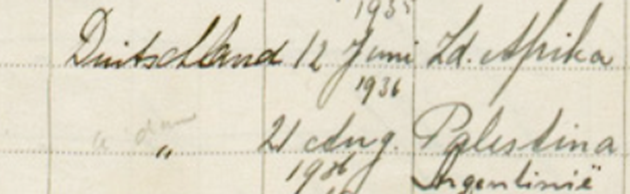 1935
Duitschland 12 Juni Zd. Afrika
1936
a dam
" 21 Aug. Palestina
1936 Argentinië